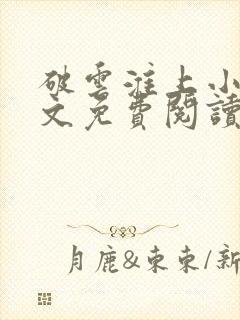 破雲淮上小
文免費閱讀
月鹿&東東/新